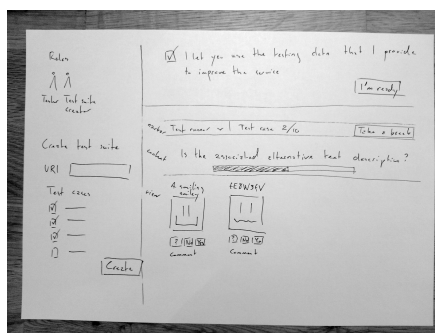 Roles
Tester Test suite
creator
Create test suite
URI
Test cases
Create
I let you use the testing data that I provide
to improve the service
I'm ready
Test runner v | Test case 2/10
Take a break
content Is the associated alternative text descriptive?
view
A smiling
smiley
? No Yes
Comment
? No Yes
Comment